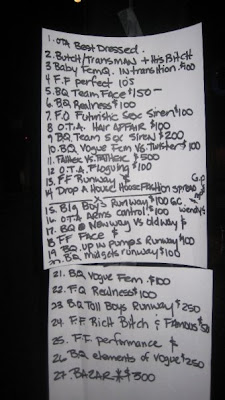 1. OTA Best Dressed.
2. Butch/Transman + His Bitch
3. Baby Fem Q. IN transition. $100
4. F.F perfect 10's
5. BQ Team Face $150 -
6. BQ Realness $100
7. F.Q Futuristic Sex Siren $100
8. O.T.A. Hair AFFAIR $100
9. BQ Team Sex Siren $200
10. BQ. Vogue Fem Vs. Twister $100
11. $500
12. O.T.A. Ploguing $100
13. FF Runway $
14. Drop A House! House Faction spread G.P
15. Big Boys Runway $100 G.C. Wendy's
16. OTA ARMS control. $100
17. BQ @ Newway Vs Oldway $
18. FF Face $
19. BQ. up in pumps Runway $100
20. BQ midgets runway $100
21. BQ Vogue Fem. $100
22. F.Q Realness $100
23. BQ Tall Boys Runway $250
24. F.F Rich Bitch & Famous $50
25. F.F. performance $
26. BQ elements of Vogue $250
27. BAZAR $300